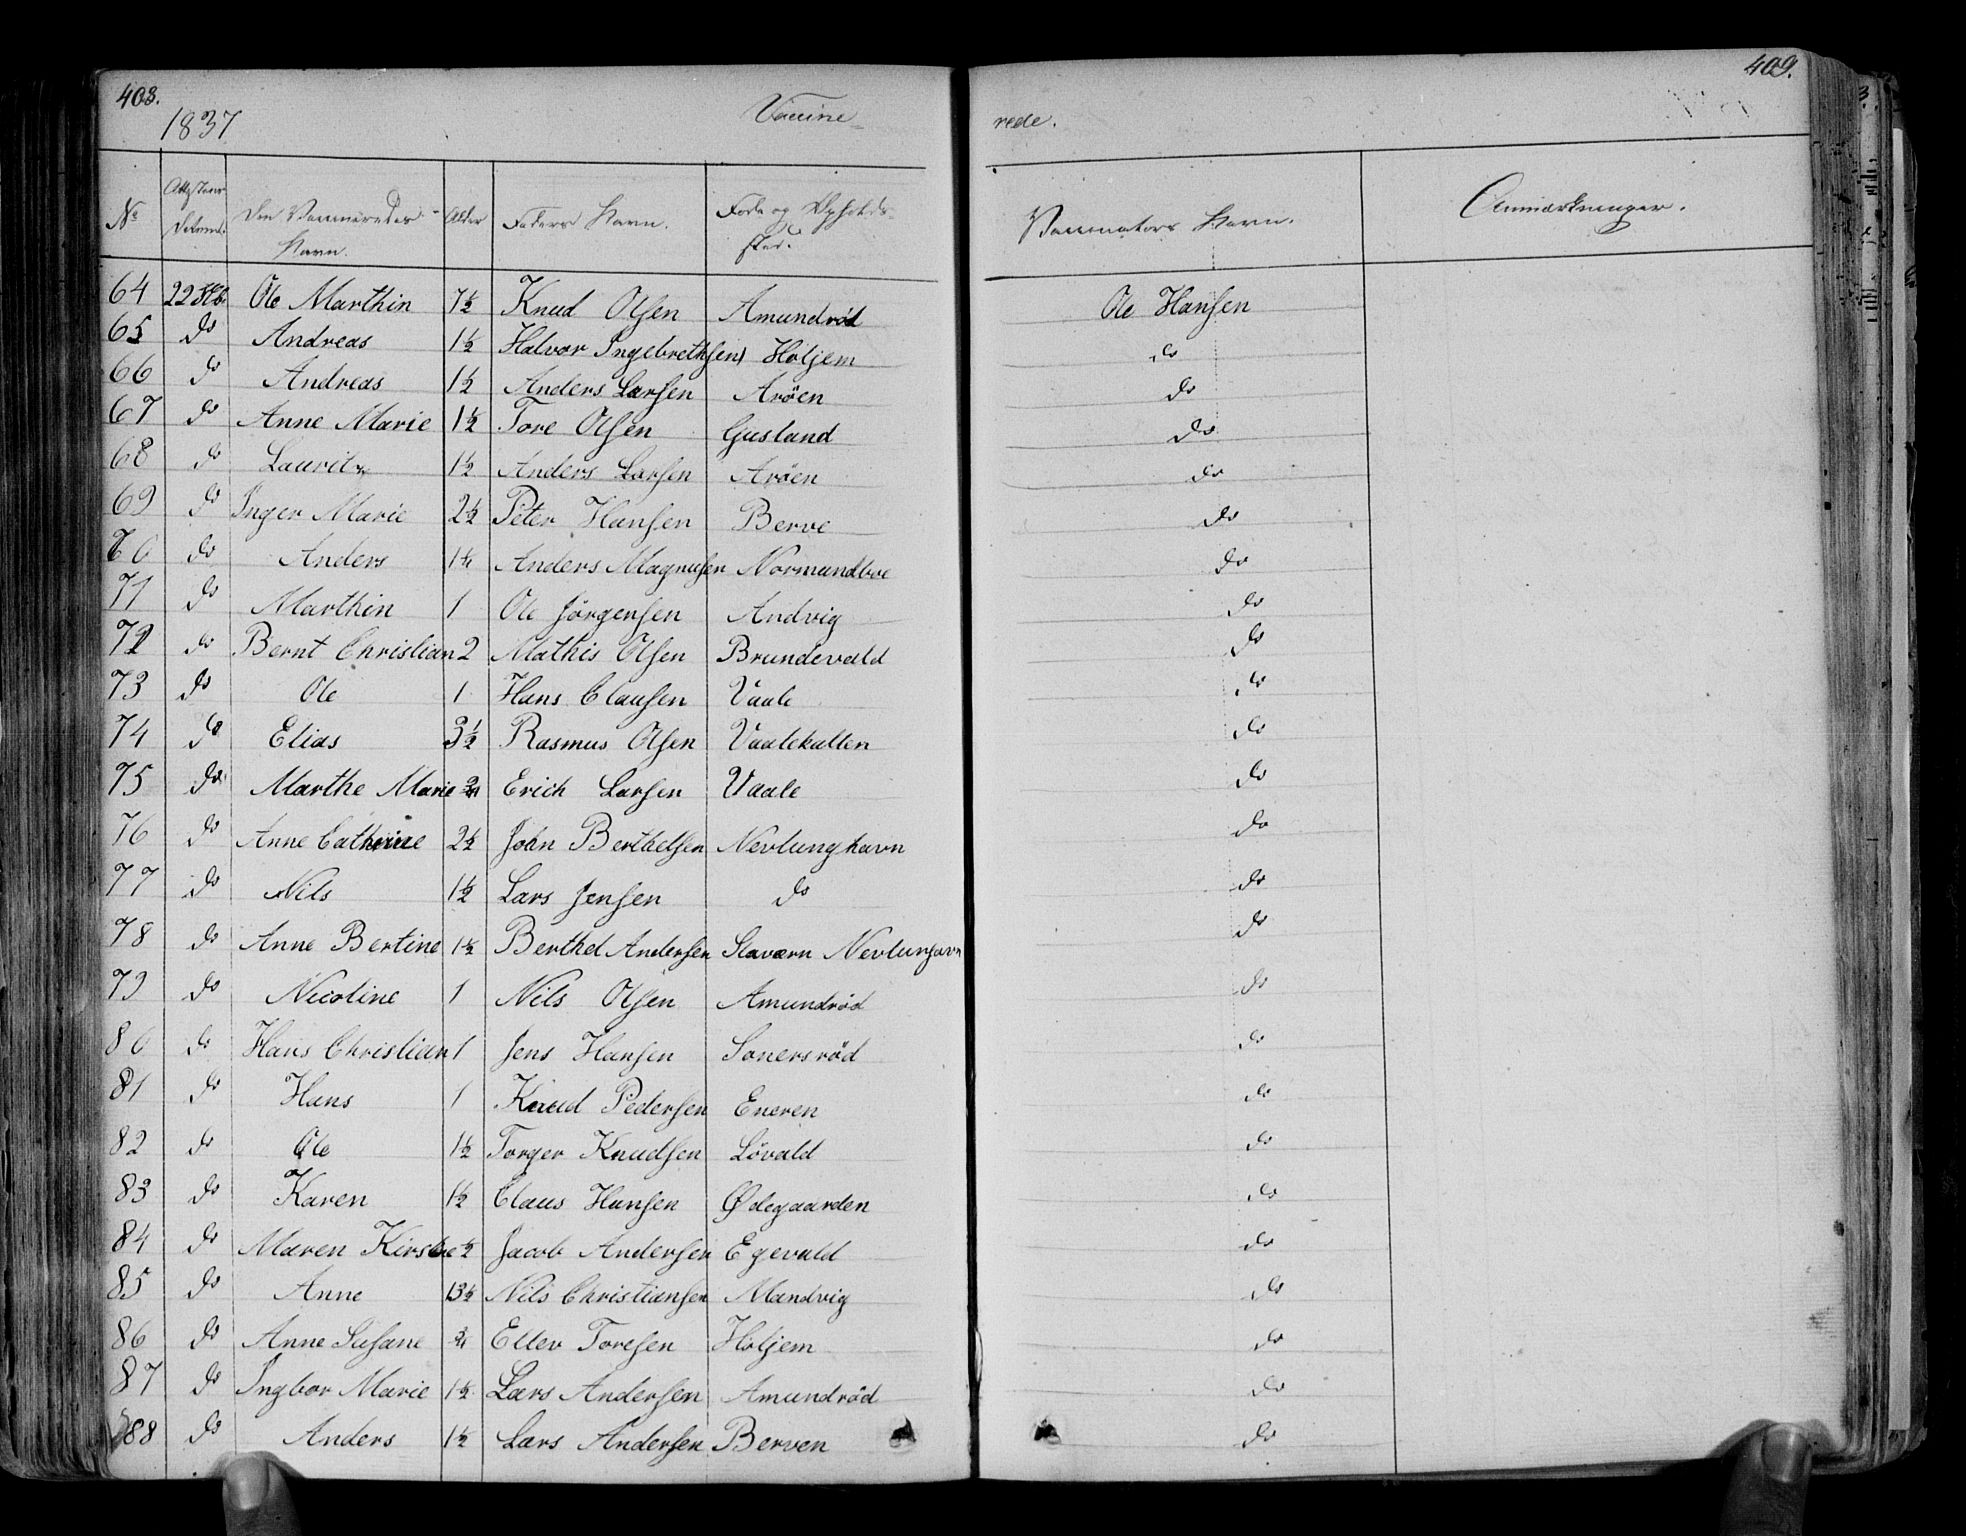 408.
409.
1837
Vaccine=
rede.
No Attestens Datum. Den Vaccineredes Navn. Alder Faders Navn. Føde og Opholds-sted. Vaccinators Navn. Anmærkninger.
64 22 Ole Marthin 7½ Knud Olsen Amundrød Ole Hansen
65 do Andreas 1½ Halvor Ingebrethsen Holjem do
66 do Andreas 1½ Anders Larsen Arøen do
67 do Anne Marie 1½ Tore Olsen Gusland do
68 do Lauritz 1½ Anders Larsen Arøen do
69 do Inger Marie 2½ Peter Hansen Berve do
70 do Anders 1¼ Anders Magnusen Normundboe do
71 do Marthin 1 Ole Jörgensen Andvig do
72 do Bernt Christian 2 Mathis Olsen Brundevald do
73 do Ole 1 Hans Clausen Vaale do
74 do Elias 3½ Rasmus Olsen Vaalekatten do
75 do Marthe Marie ¾ Erich Larsen Vaale do
76 do Anne Cathrine 2½ John Berthelsen Nevlunghavn do
77 do Nils 1½ Lars Jensen do do
78 do Anne Bertine 1½ Berthel Andersen Staværn Nevlunhavn do
79 do Nicoline 1 Nils Olsen Amundrød do
80 do Hans Christian 1 Jens Hansen Sonersrød do
81 do Hans 1 Knud Pedersen Eneren do
82 do Ole 1½ Torger Knudsen Lövald do
83 do Karen 1½ Claus Hansen Ødegaarden do
84 do Maren Kirstine ½ Jacob Andersen Egevald do
85 do Anne 13½ Nils Christiansen Mandvig do
86 do Anne Susane ¾ Ellev Toresen Holjem do
87 do Ingbor Marie 1½ Lars Andersen Amundrød do
88 do Anders 1½ Lars Andersen Berven do